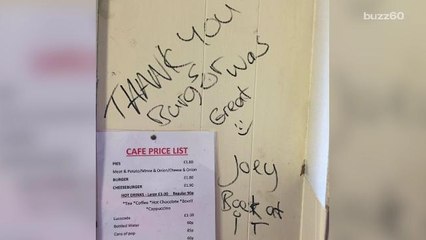 buzz60
THANK YOU
Burgor was
Great
Joey
Back at
iT
CAFE PRICE LIST
PIES £1.60
Meat & Potato/Mince & Onion/Cheese & Onion
BURGER £1.80
CHEESEBURGER £1.90
HOT DRINKS - Large £1.20 Regular 90p
*Tea *Coffee *Hot Chocolate *Bovril
*Cappuccino
Lucozade
Bottled Water
Cans of pop